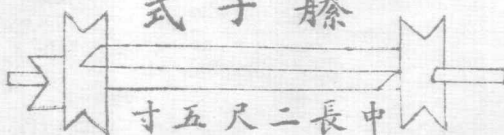 縢子式
中長二尺五寸